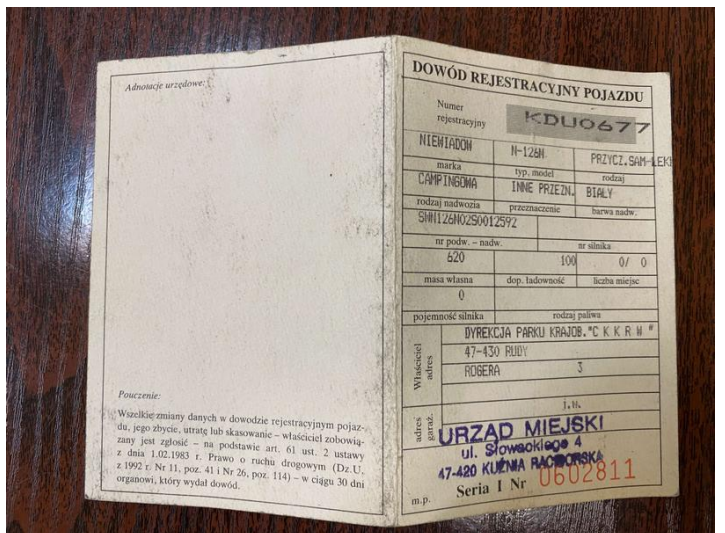 Adnotacje urzędowe:
Pouczenie:
Wszelkie zmiany danych w dowodzie rejestracyjnym pojaz-
du, jego zbycie, utratę lub skasowanie – właściciel zobowią-
zany jest zgłosić – na podstawie art. 61 ust. 2 ustawy
z dnia 1.02.1983 r. Prawo o ruchu drogowym (Dz.U.
z 1992 r. Nr 11, poz. 41 i Nr 26, poz. 114) – w ciągu 30 dni
organowi, który wydał dowód.
DOWÓD REJESTRACYJNY POJAZDU
Numer
rejestracyjny KDU0677
NIEWIADOW N-126N PRZYCZ.SAM-LEKK
marka typ, model rodzaj
CAMPINGOWA INNE PRZEZN. BIAŁY
rodzaj nadwozia przeznaczenie barwa nadw.
SWN126N02S0012592
nr podw. – nadw. nr silnika
620 100 0/ 0
masa własna dop. ładowność liczba miejsc
0
pojemność silnika rodzaj paliwa
Właściciel adres
DYREKCJA PARKU KRAJOB."C K K R W "
47-430 RUDY
ROGERA 3
adres garaż.
j.w.
URZĄD MIEJSKI
ul. Słowackiego 4
47-420 KUŹNIA RACIBORSKA
m.p. Seria I Nr 0602811